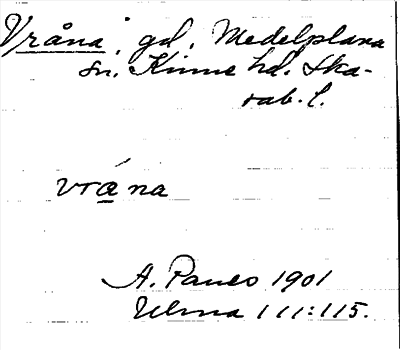 Vråna, gd, Medelplana
sn. Kinne hd. Ska-
rab. l.
vrǻna
A. Paues 1901
Ulma 111:115.